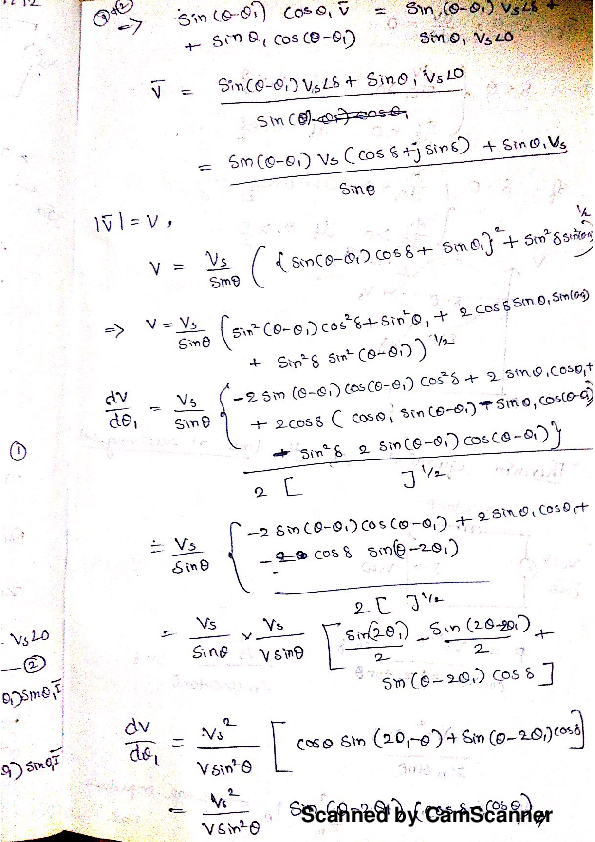 sin(θ-θ₁) cosθ₁ V̄ = sin(θ-θ₁) Vs∠δ +
+ sinθ₁ cos(θ-θ₁) sinθ₁ Vs∠0
V̄ = sin(θ-θ₁) Vs∠δ + sinθ₁ Vs∠0
sin(
= sin(θ-θ₁) Vs (cosδ + j sinδ) + sinθ₁ Vs
sinθ
|V̄| = V,
V = Vs/sinθ ( { sin(θ-θ₁) cosδ + sinθ₁ }² + sin²δ
=> V = Vs/sinθ ( sin²(θ-θ₁) cos²δ + sin²θ₁ + 2 cosδ sinθ₁ sin(
+ sin²δ sin²(θ-θ₁) )^1/2
dV/dθ₁ = Vs/sinθ { -2 sin(θ-θ₁) cos(θ-θ₁) cos²δ + 2 sinθ₁ cosθ₁ +
+ 2cosδ ( cosθ₁ sin(θ-θ₁) - sinθ₁ cos(θ-
①
sin²δ 2 sin(θ-θ₁) cos(θ-θ₁) }
2 [ ]^1/2
= Vs/sinθ { -2 sin(θ-θ₁) cos(θ-θ₁) + 2 sinθ₁ cosθ₁ +
cosδ sin(θ-2θ₁)
2 [ ]^1/2
Vs∠0
②
= Vs/sinθ × Vs/V sinθ [ sin(2θ₁)/2 - sin(2θ-2θ₁)/2 +
sin(θ-2θ₁) cosδ ]
θ₁) sinθ₁ I̅
dV/dθ₁ = Vs²/V sin²θ [ cosθ sin(2θ₁-θ) + sin(θ-2θ₁) cosδ ]
θ₁) sinθ₁ I̅
= Vs²/V sin²θ sin(θ-2θ₁) [cosδ - cosθ]
Scanned by CamScanner